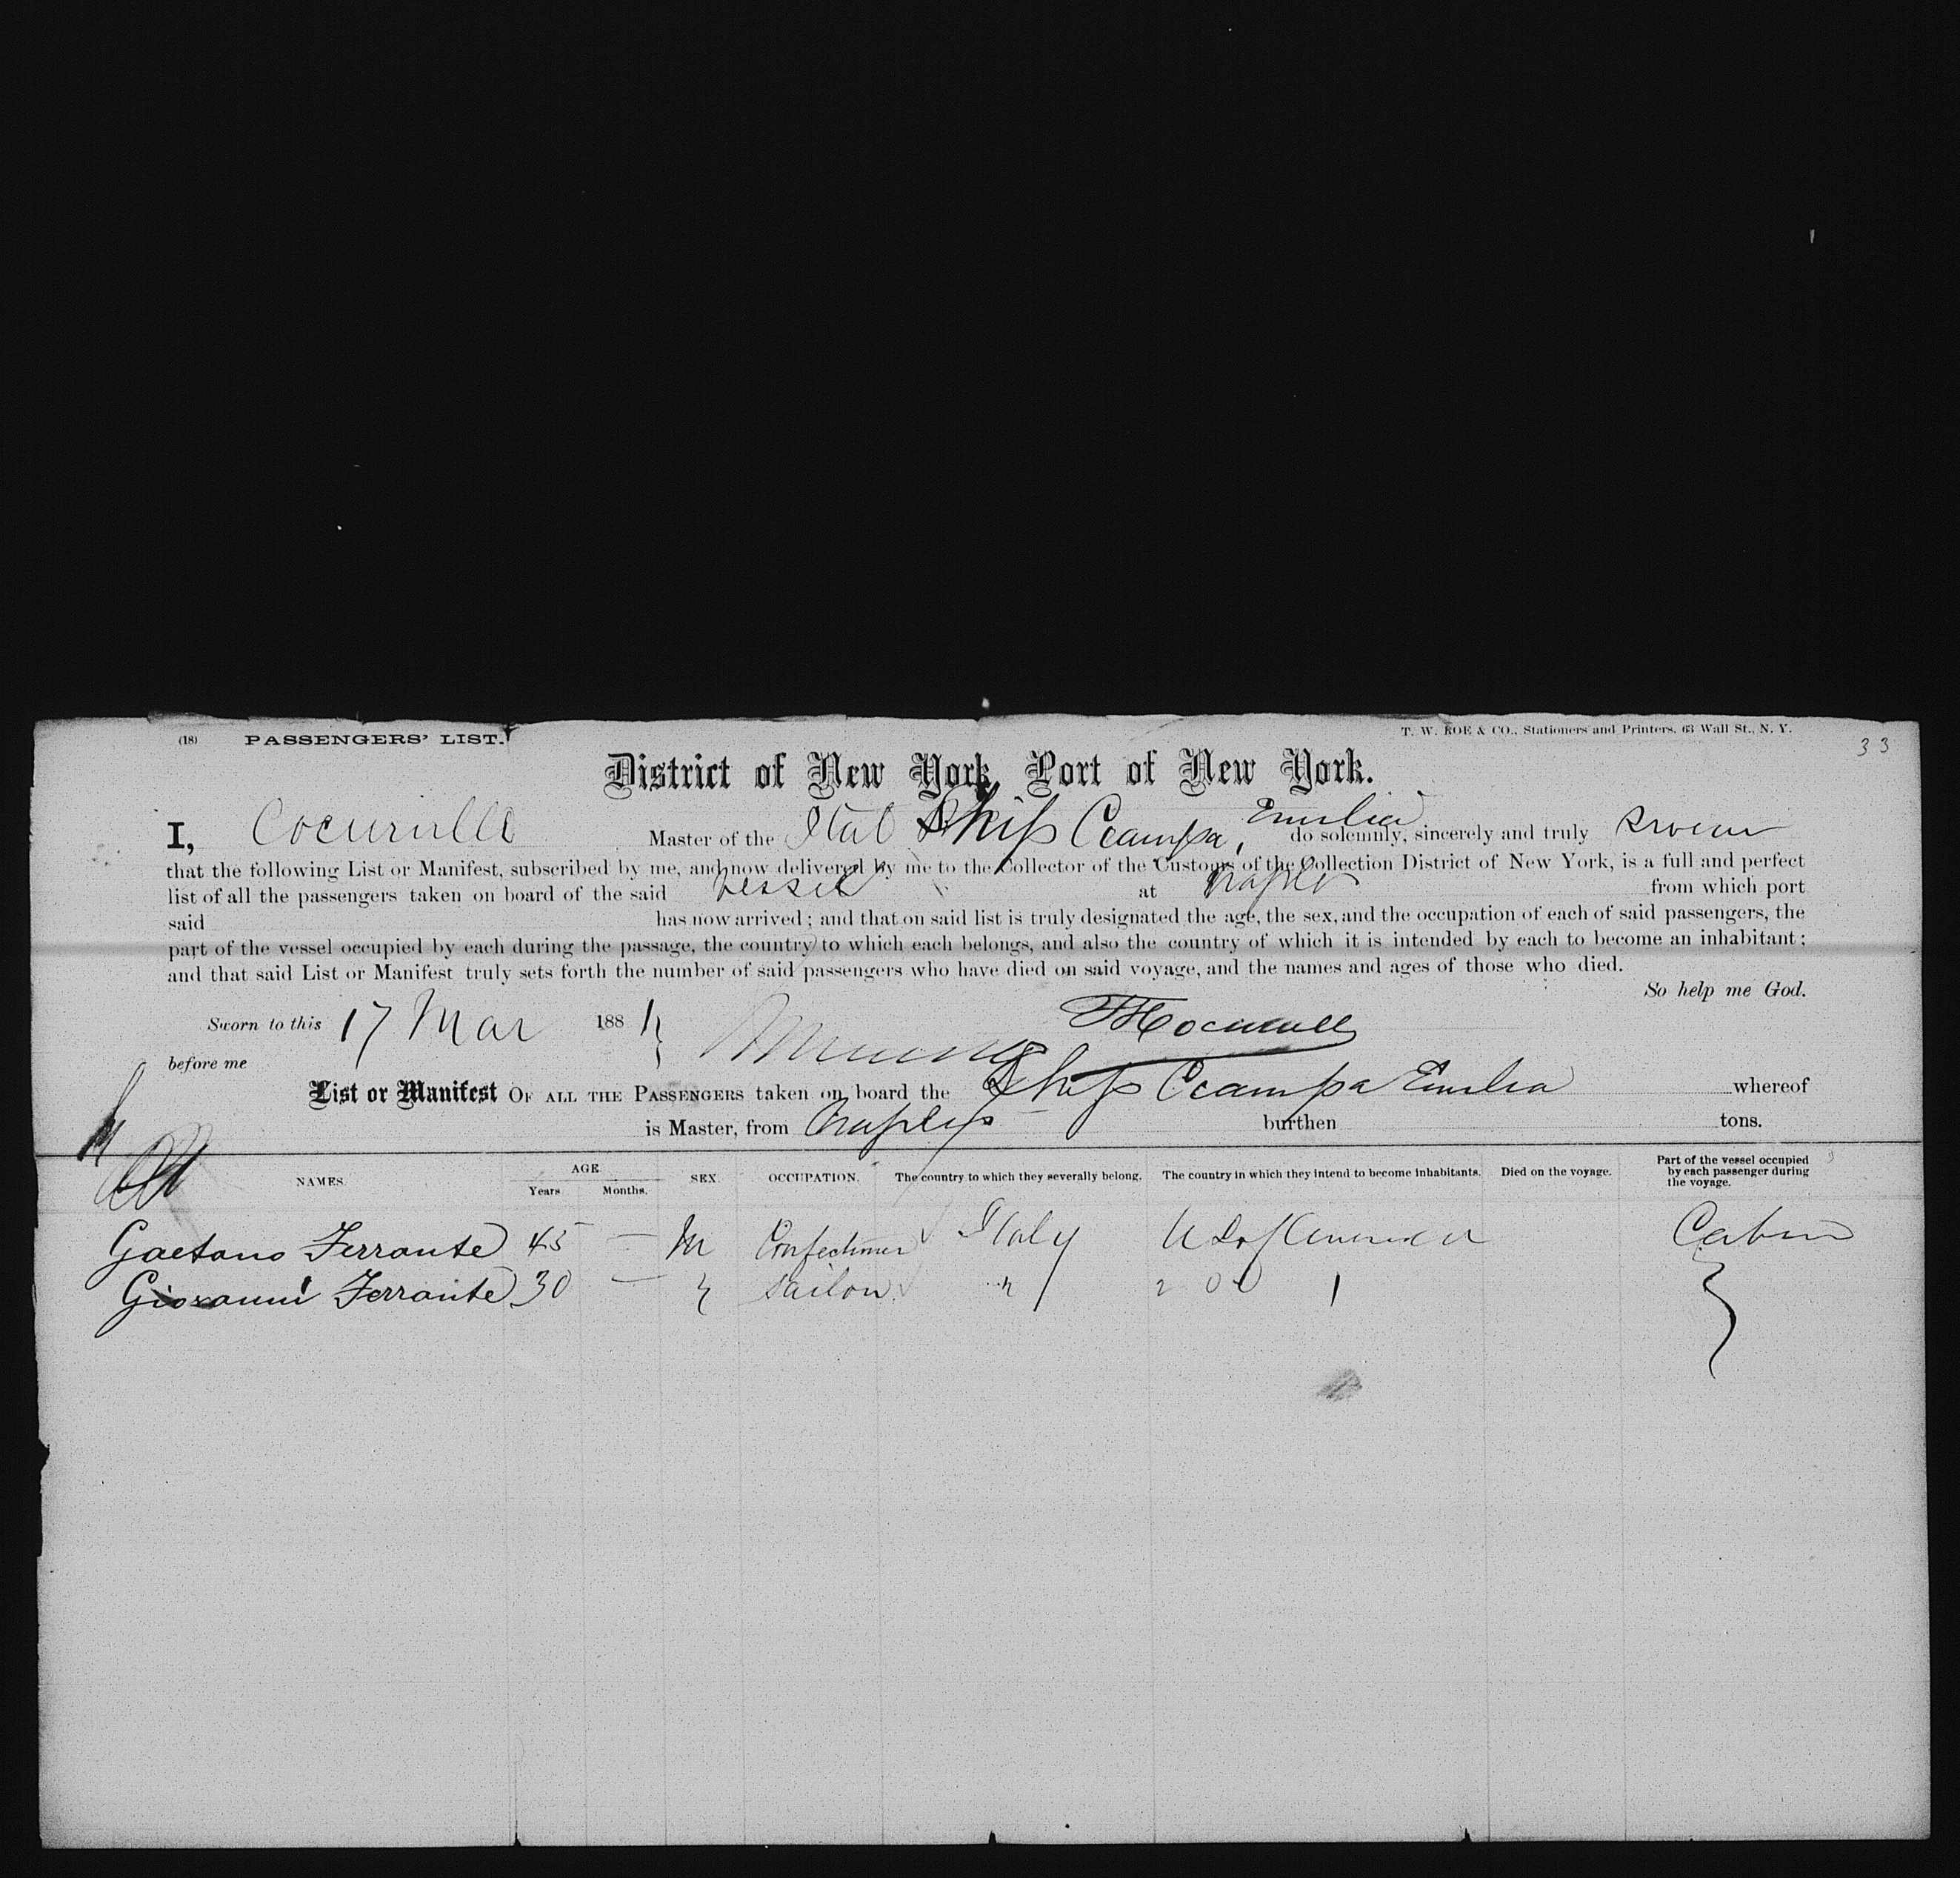 (18) PASSENGERS' LIST.
T. W. ROE & CO., Stationers and Printers, 63 Wall St., N. Y.
33
District of New York, Port of New York.
I, Master of the Ital Ship Ccampa, Emilia do solemnly, sincerely and truly swear
that the following List or Manifest, subscribed by me, and now delivered by me to the Collector of the Customs of the Collection District of New York, is a full and perfect
list of all the passengers taken on board of the said vessel at Naples from which port
said has now arrived; and that on said list is truly designated the age, the sex, and the occupation of each of said passengers, the
part of the vessel occupied by each during the passage, the country to which each belongs, and also the country of which it is intended by each to become an inhabitant;
and that said List or Manifest truly sets forth the number of said passengers who have died on said voyage, and the names and ages of those who died.
So help me God.
Sworn to this 17 Mar 1881
before me
List or Manifest OF ALL THE PASSENGERS taken on board the Ship Ccampa Emilia whereof
is Master, from Naples burthen tons.
NAMES. AGE. SEX. OCCUPATION. The country to which they severally belong. The country in which they intend to become inhabitants. Died on the voyage. Part of the vessel occupied by each passenger during the voyage.
Years Months.
Gaetano Ferrante 45 — M Confectioner Italy U S of America Cabin
Giovanni Ferrante 30 — Sailor "